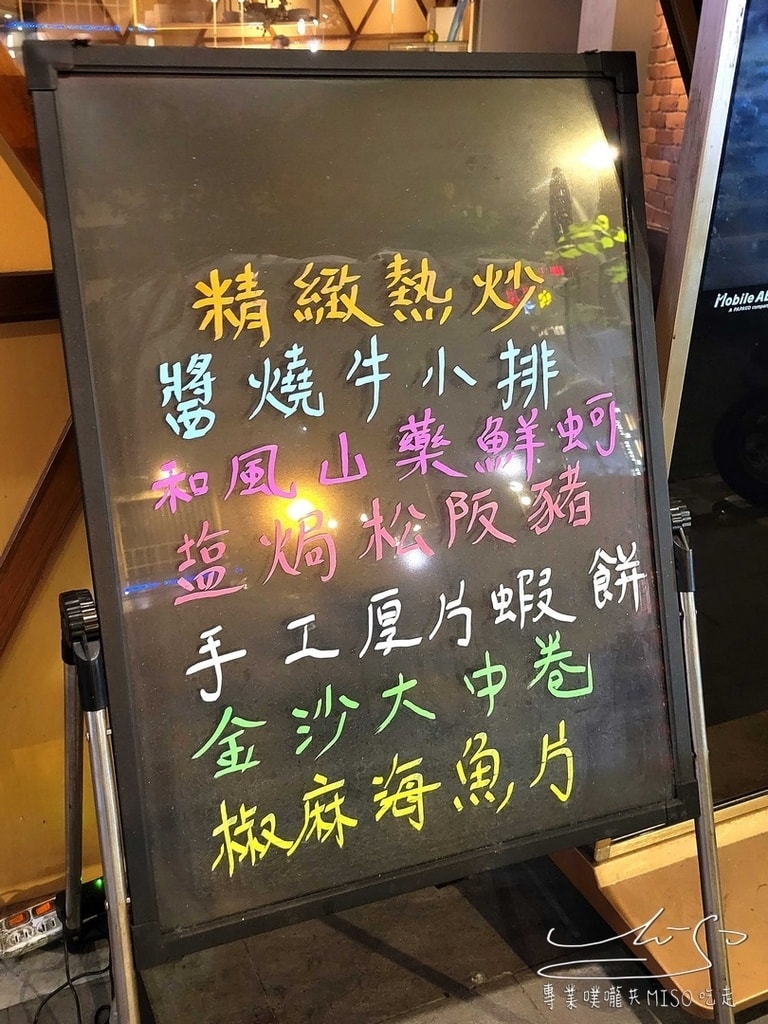 精緻熱炒
醬燒牛小排
和風山藥鮮蚵
塩焗松阪豬
手工厚片蝦餅
金沙大中卷
椒麻海魚片
Mobile
MiSo
專業噗嚨共MISO吃走